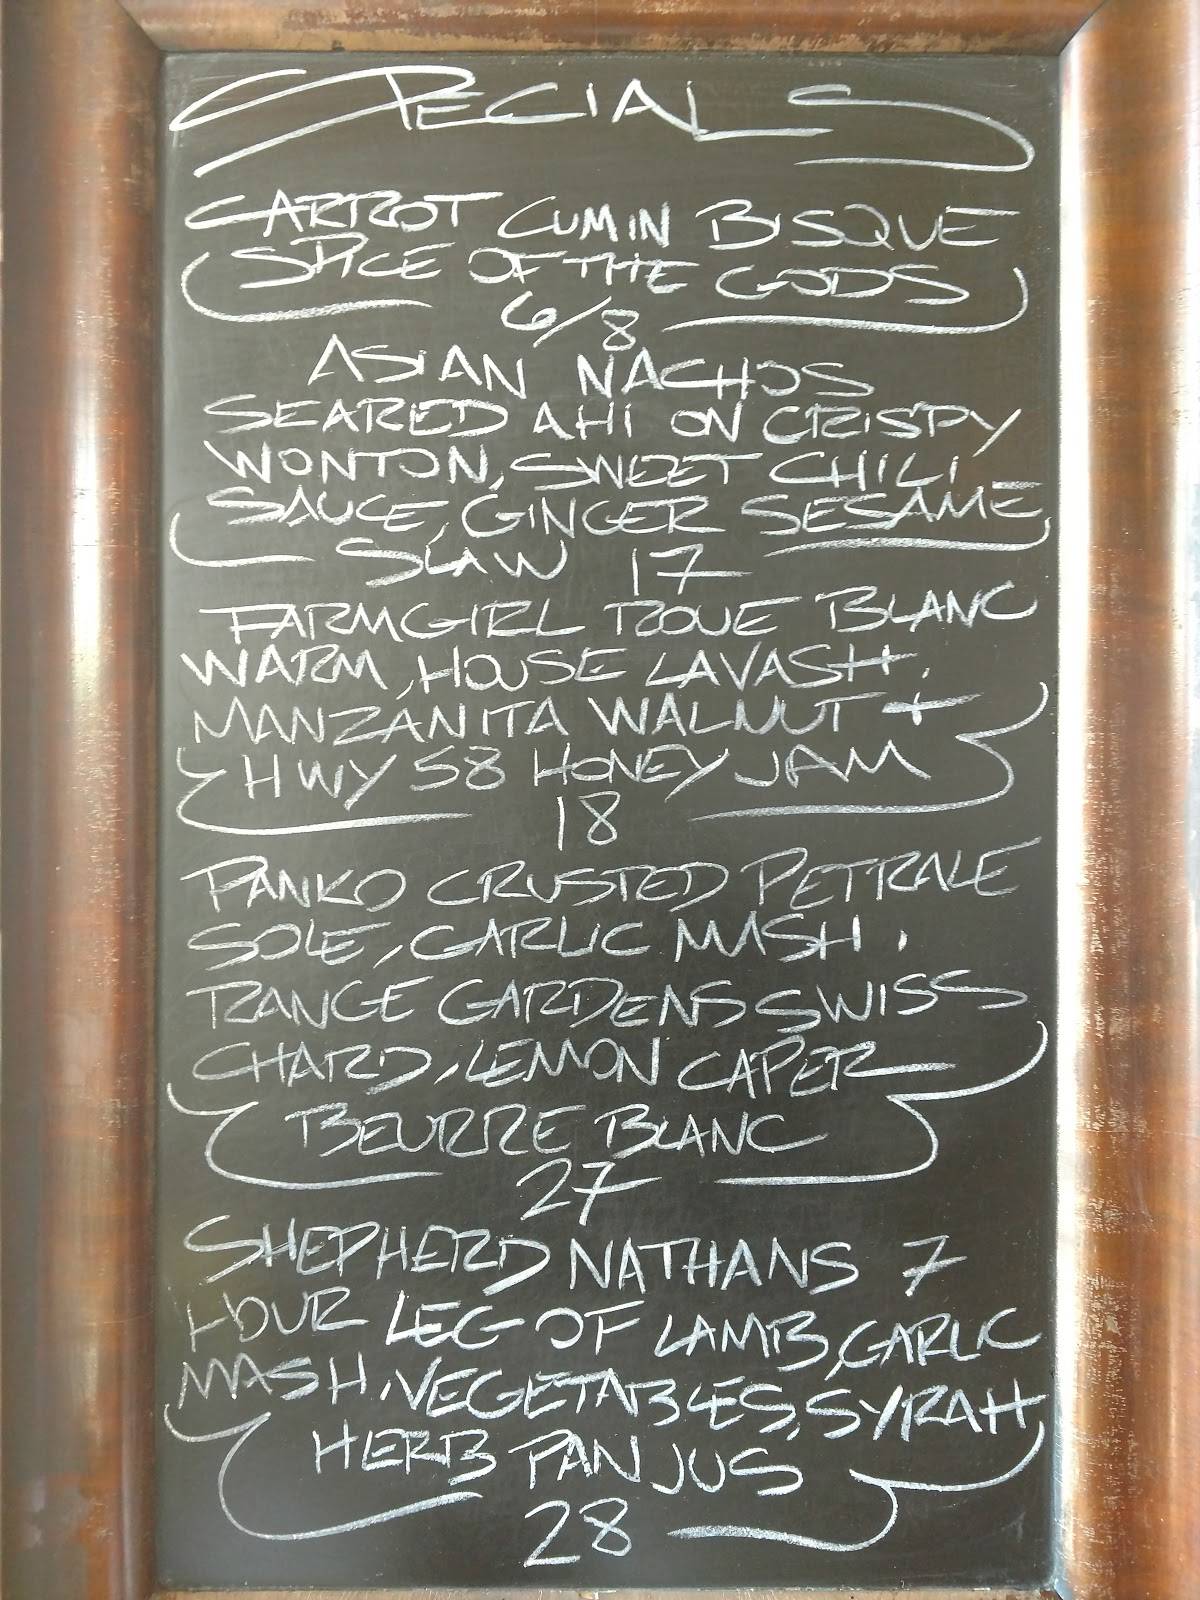 SPECIALS
CARROT CUMIN BISQUE
SPICE OF THE GODS
6/8
ASIAN NACHOS
SEARED AHI ON CRISPY
WONTON, SWEET CHILI
SAUCE, GINGER SESAME
SLAW 17
FARMGIRL ROVE BLANC
WARM, HOUSE LAVASH,
MANZANITA WALNUT +
HWY 58 HONEY JAM
18
PANKO CRUSTED PETRALE
SOLE, GARLIC MASH,
RANGE GARDENS SWISS
CHARD, LEMON CAPER
BEURRE BLANC
27
SHEPHERD NATHANS 7
HOUR LEG OF LAMB, GARLIC
MASH, VEGETABLES, SYRAH
HERB PAN JUS
28